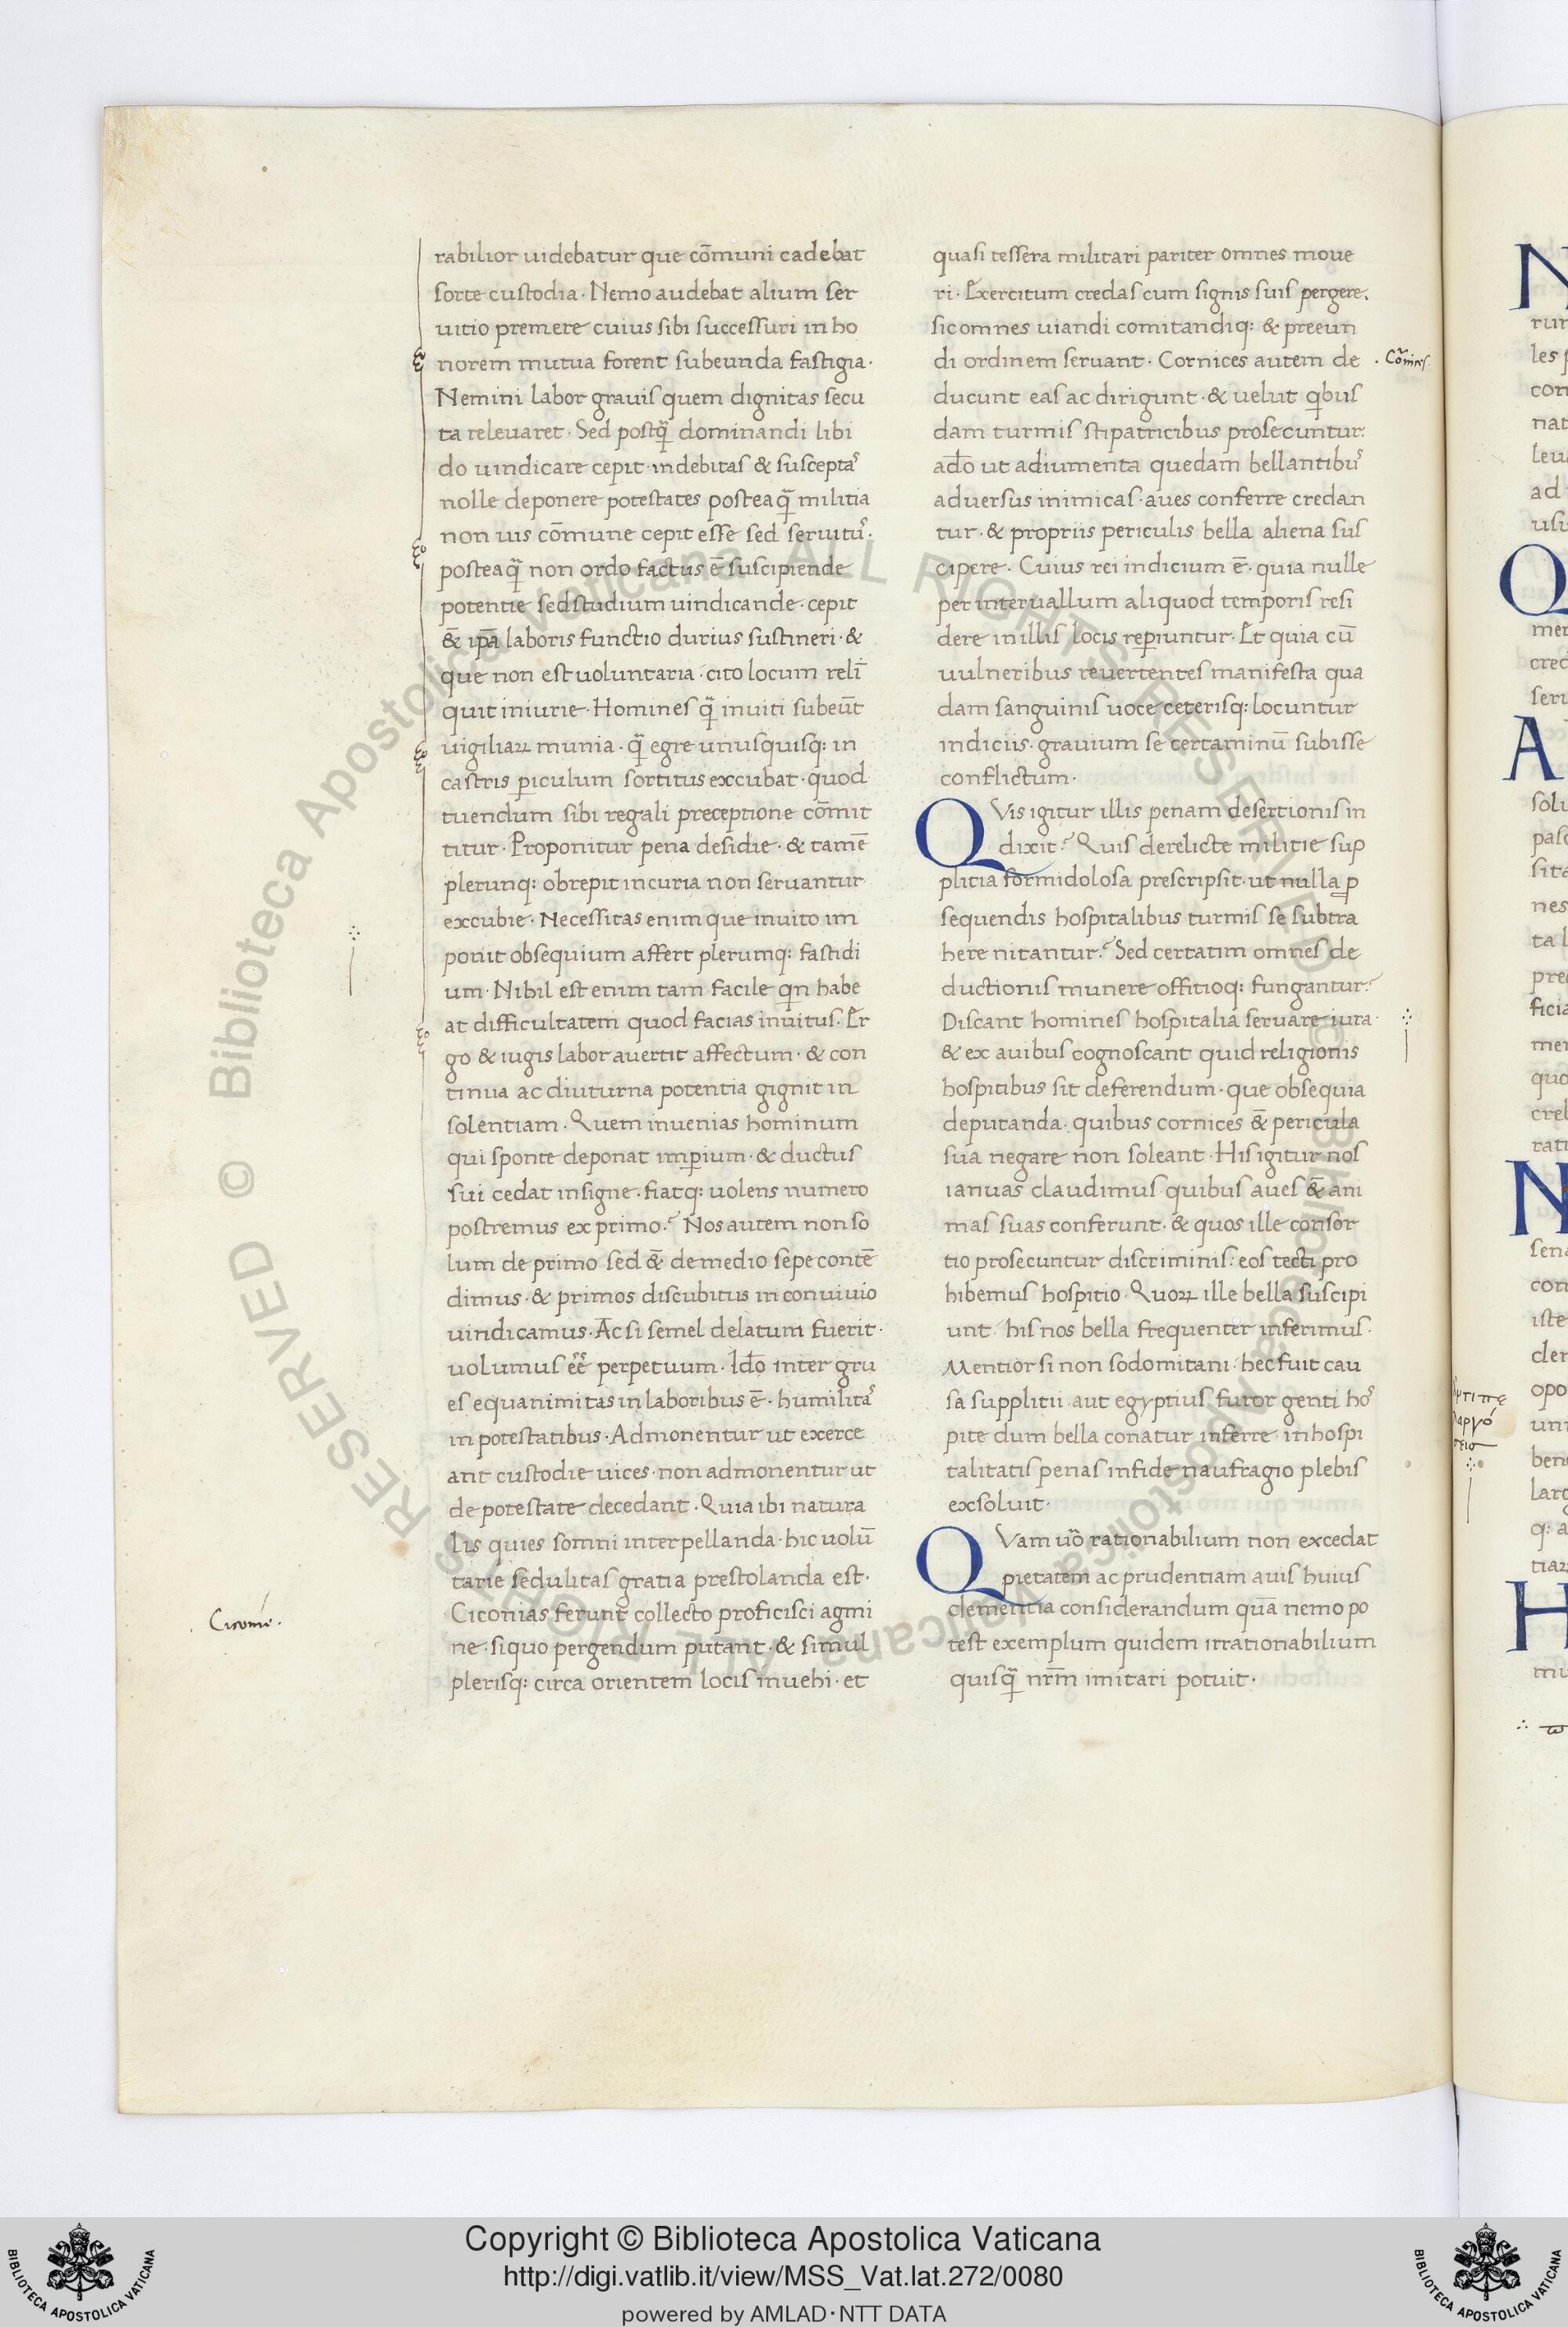 rabilior uidebatur que cōmuni cadebat
sorte custodia· Nemo audebat alium ser
uitio premere cuius sibi successuri in ho
norem mutua forent subeunda fastigia·
Nemini labor grauis quem dignitas secu
ta releuaret· Sed postq̃ dominandi libi
do uindicare cepit indebitas & susceptaˢ
nolle deponere potestates posteaq̃ militia
non ius cōmune cepit esse sed seruitúˢ·
posteaq̃ non ordo factus ē suscipiende
potentie sed studium uindicande· cepit
&̄ ip̄a laboris functio durius sustineri· &
que non est uoluntaria· cito locum relī
quit iniurie· Homines q̃ inuiti subeūt
uigiliaꝝ munia· q̃ egre unusquisq: in
castris ꝑiculum sortitus excubat· quod
tuendum sibi regali preceptione cōmit
titur· Proponitur pena desidie· & tamē
plerunq: obrepit incuria non seruantur
excubie· Necessitas enim que inuito im
ponit obsequium affert plerumq: fastidi
um· Nihil est enim tam facile qn habe
at difficultatem quod facias inuitus· Er
go & iugis labor auertit affectum· & con
tinua ac diuturna potentia gignit in
solentiam· Quem inuenias hominum
qui sponte deponat imꝑium· & ductus
sui cedat insigne· fiatq: uolens numero
postremus ex primo? Nos autem non so
lum de primo sed &̄ de medio sepe contē
dimus· & primos discubitus in conuiuio
uindicamus· Ac si semel delatum fuerit·
uolumus eē̄ perpetuum· Iđo inter gru
es equanimitas in laboribus ē· humilitaˢ
in potestatibus· Admonentur ut exerce
ant custodie uices· non admonentur ut
de potestate decedant· Quia ibi natura
lis quies somni interpellanda· hic uolū
tarie sedulitas gratia prestolanda est·
Ciconias ferunt collecto proficisci agmi
ne· siquo pergendum putant· & simul
plerisq: circa orientem locis inuehi· et
quasi tessera militari pariter omnes moue
ri· Exercitum credas cum signis suis pergere.
sic omnes uiandi comitandiq: & preeun
di ordinem seruant· Cornices autem de
ducunt eas ac dirigunt· & uelut qbus
dam turmis stipatricibus prosecuntur:
ađo ut adiumenta quedam bellantibuˢ
aduersus inimicas· aues conferre credan
tur· & propriis periculis bella aliena sus
cipere· Cuius rei indicium ē· quia nulle
per interuallum aliquod temporis resi
dere in illis locis reꝑiuntur· Et quia cū
uulneribus reuertentes manifesta qua
dam sanguinis uoce ceterisq: locuntur
indiciis· grauium se certaminū subisse
conflictum·
QVis igitur illis penam desertionis in
dixit? Quis derelicte militie sup
plitia formidolosa prescripsit· ut nulla ꝑ
sequendis hospitalibus turmis se subtra
here nitantur? Sed certatim omnes de
ductionis munere offitioq: fungantur?
Discant homines hospitalia seruare iura·
& ex auibus cognoscant quid religionis
hospitibus sit deferendum· que obsequia
deputanda· quibus cornices &̄ pericula
sua negare non soleant· His igitur nos
ianuas claudimus quibus aues &̄ ani
mas suas conferunt· & quos ille consor
tio prosecuntur discriminis: eos tecti pro
hibemus hospitio· Quoꝝ ille bella suscipi
unt· his nos bella frequenter inferimus·
Mentior si non sodomitani· hec fuit cau
sa supplitii aut egyptius furor genti hoˢ
pite dum bella conatur inferre· inhospi
talitatis penas infide naufragio plebis
exsoluit·
QVam uo̅ rationabilium non excedat
pietatem ac prudentiam auis huius
clementia considerandum quā nemo po
test exemplum quidem irrationabilium
quisq̃ nr̄m imitari potuit·
Copyright © Biblioteca Apostolica Vaticana
http://digi.vatlib.it/view/MSS_Vat.lat.272/0080
powered by AMLAD·NTT DATA
BIBLIOTECA APOSTOLICA VATICANA
BIBLIOTECA APOSTOLICA VATICANA
© Biblioteca Apostolica Vaticana ALL RIGHTS RESERVED